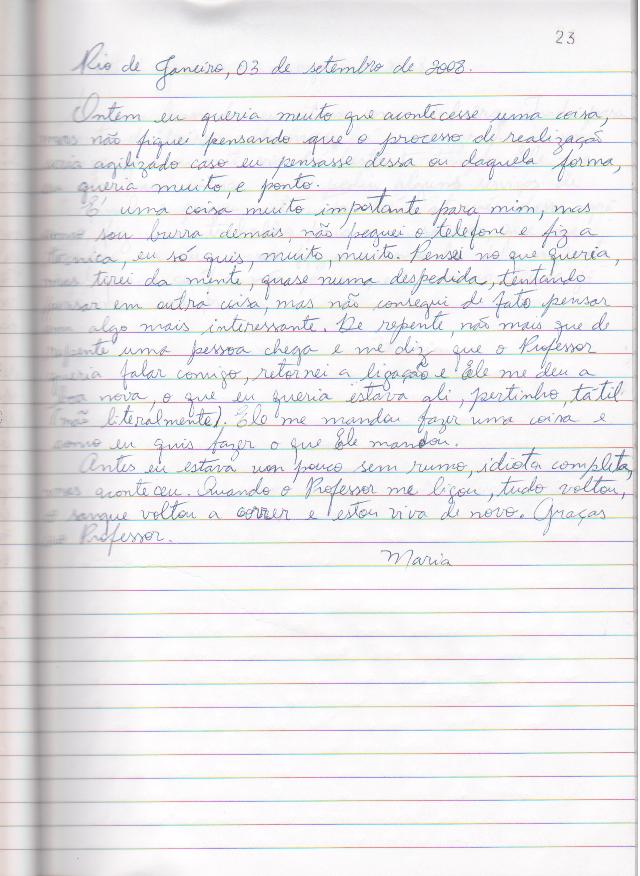 23
Rio de Janeiro, 03 de setembro de 2008.
Ontem eu queria muito que acontecesse uma coisa,
mas não fiquei pensando que o processo de realizaçã
seria agilizado caso eu pensasse dessa ou daquela forma,
eu queria muito, e ponto.
É uma coisa muito importante para mim, mas
como sou burra demais, não peguei o telefone e fiz a
técnica, eu só quis, muito, muito. Pensei no que queria,
mas tirei da mente, quase numa despedida, tentando
pensar em outra coisa, mas não consegui de fato pensar
em algo mais interessante. De repente, não mais que de
repente uma pessoa chega e me diz que o Professor
queria falar comigo, retornei a ligação e Ele me deu a
boa nova, o que eu queria estava ali, pertinho, tátil
(não literalmente). Ele me mandou fazer uma coisa e
como eu quis fazer o que Ele mandou.
Antes eu estava um pouco sem rumo, idiota completa,
mas aconteceu. Quando o Professor me ligou, tudo voltou,
o sangue voltou a correr e estou viva de novo. Graças
ao Professor.
Maria